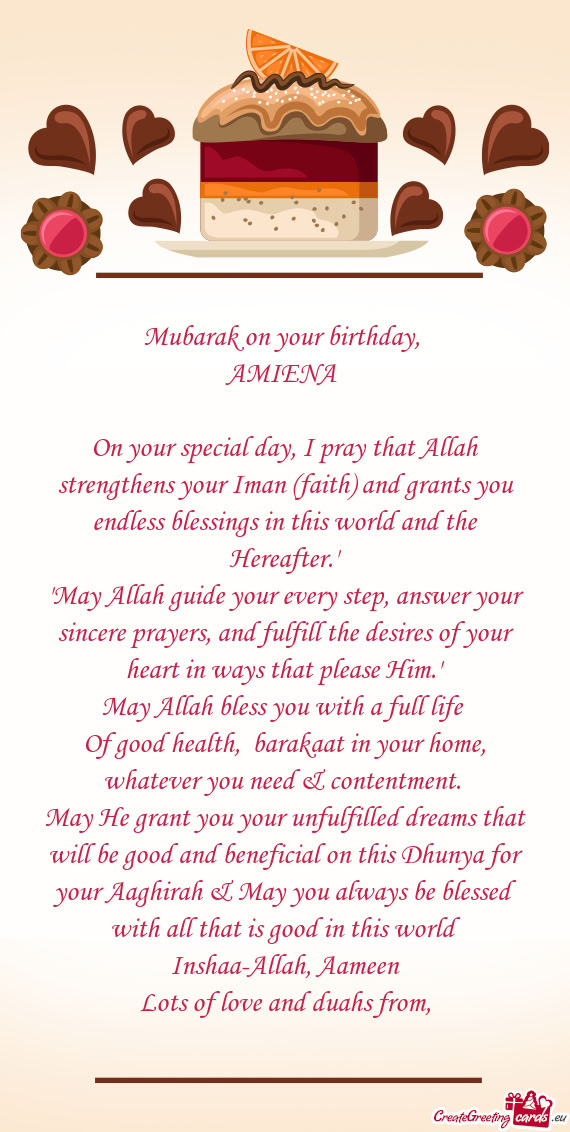 Mubarak on your birthday,
AMIENA
On your special day, I pray that Allah
strengthens your Iman (faith) and grants you
endless blessings in this world and the
Hereafter.'
'May Allah guide your every step, answer your
sincere prayers, and fulfill the desires of your
heart in ways that please Him.'
May Allah bless you with a full life
Of good health,  barakaat in your home,
whatever you need & contentment.
May He grant you your unfulfilled dreams that
will be good and beneficial on this Dhunya for
your Aaghirah & May you always be blessed
with all that is good in this world
Inshaa-Allah, Aameen
Lots of love and duahs from,
CreateGreeting cards .eu